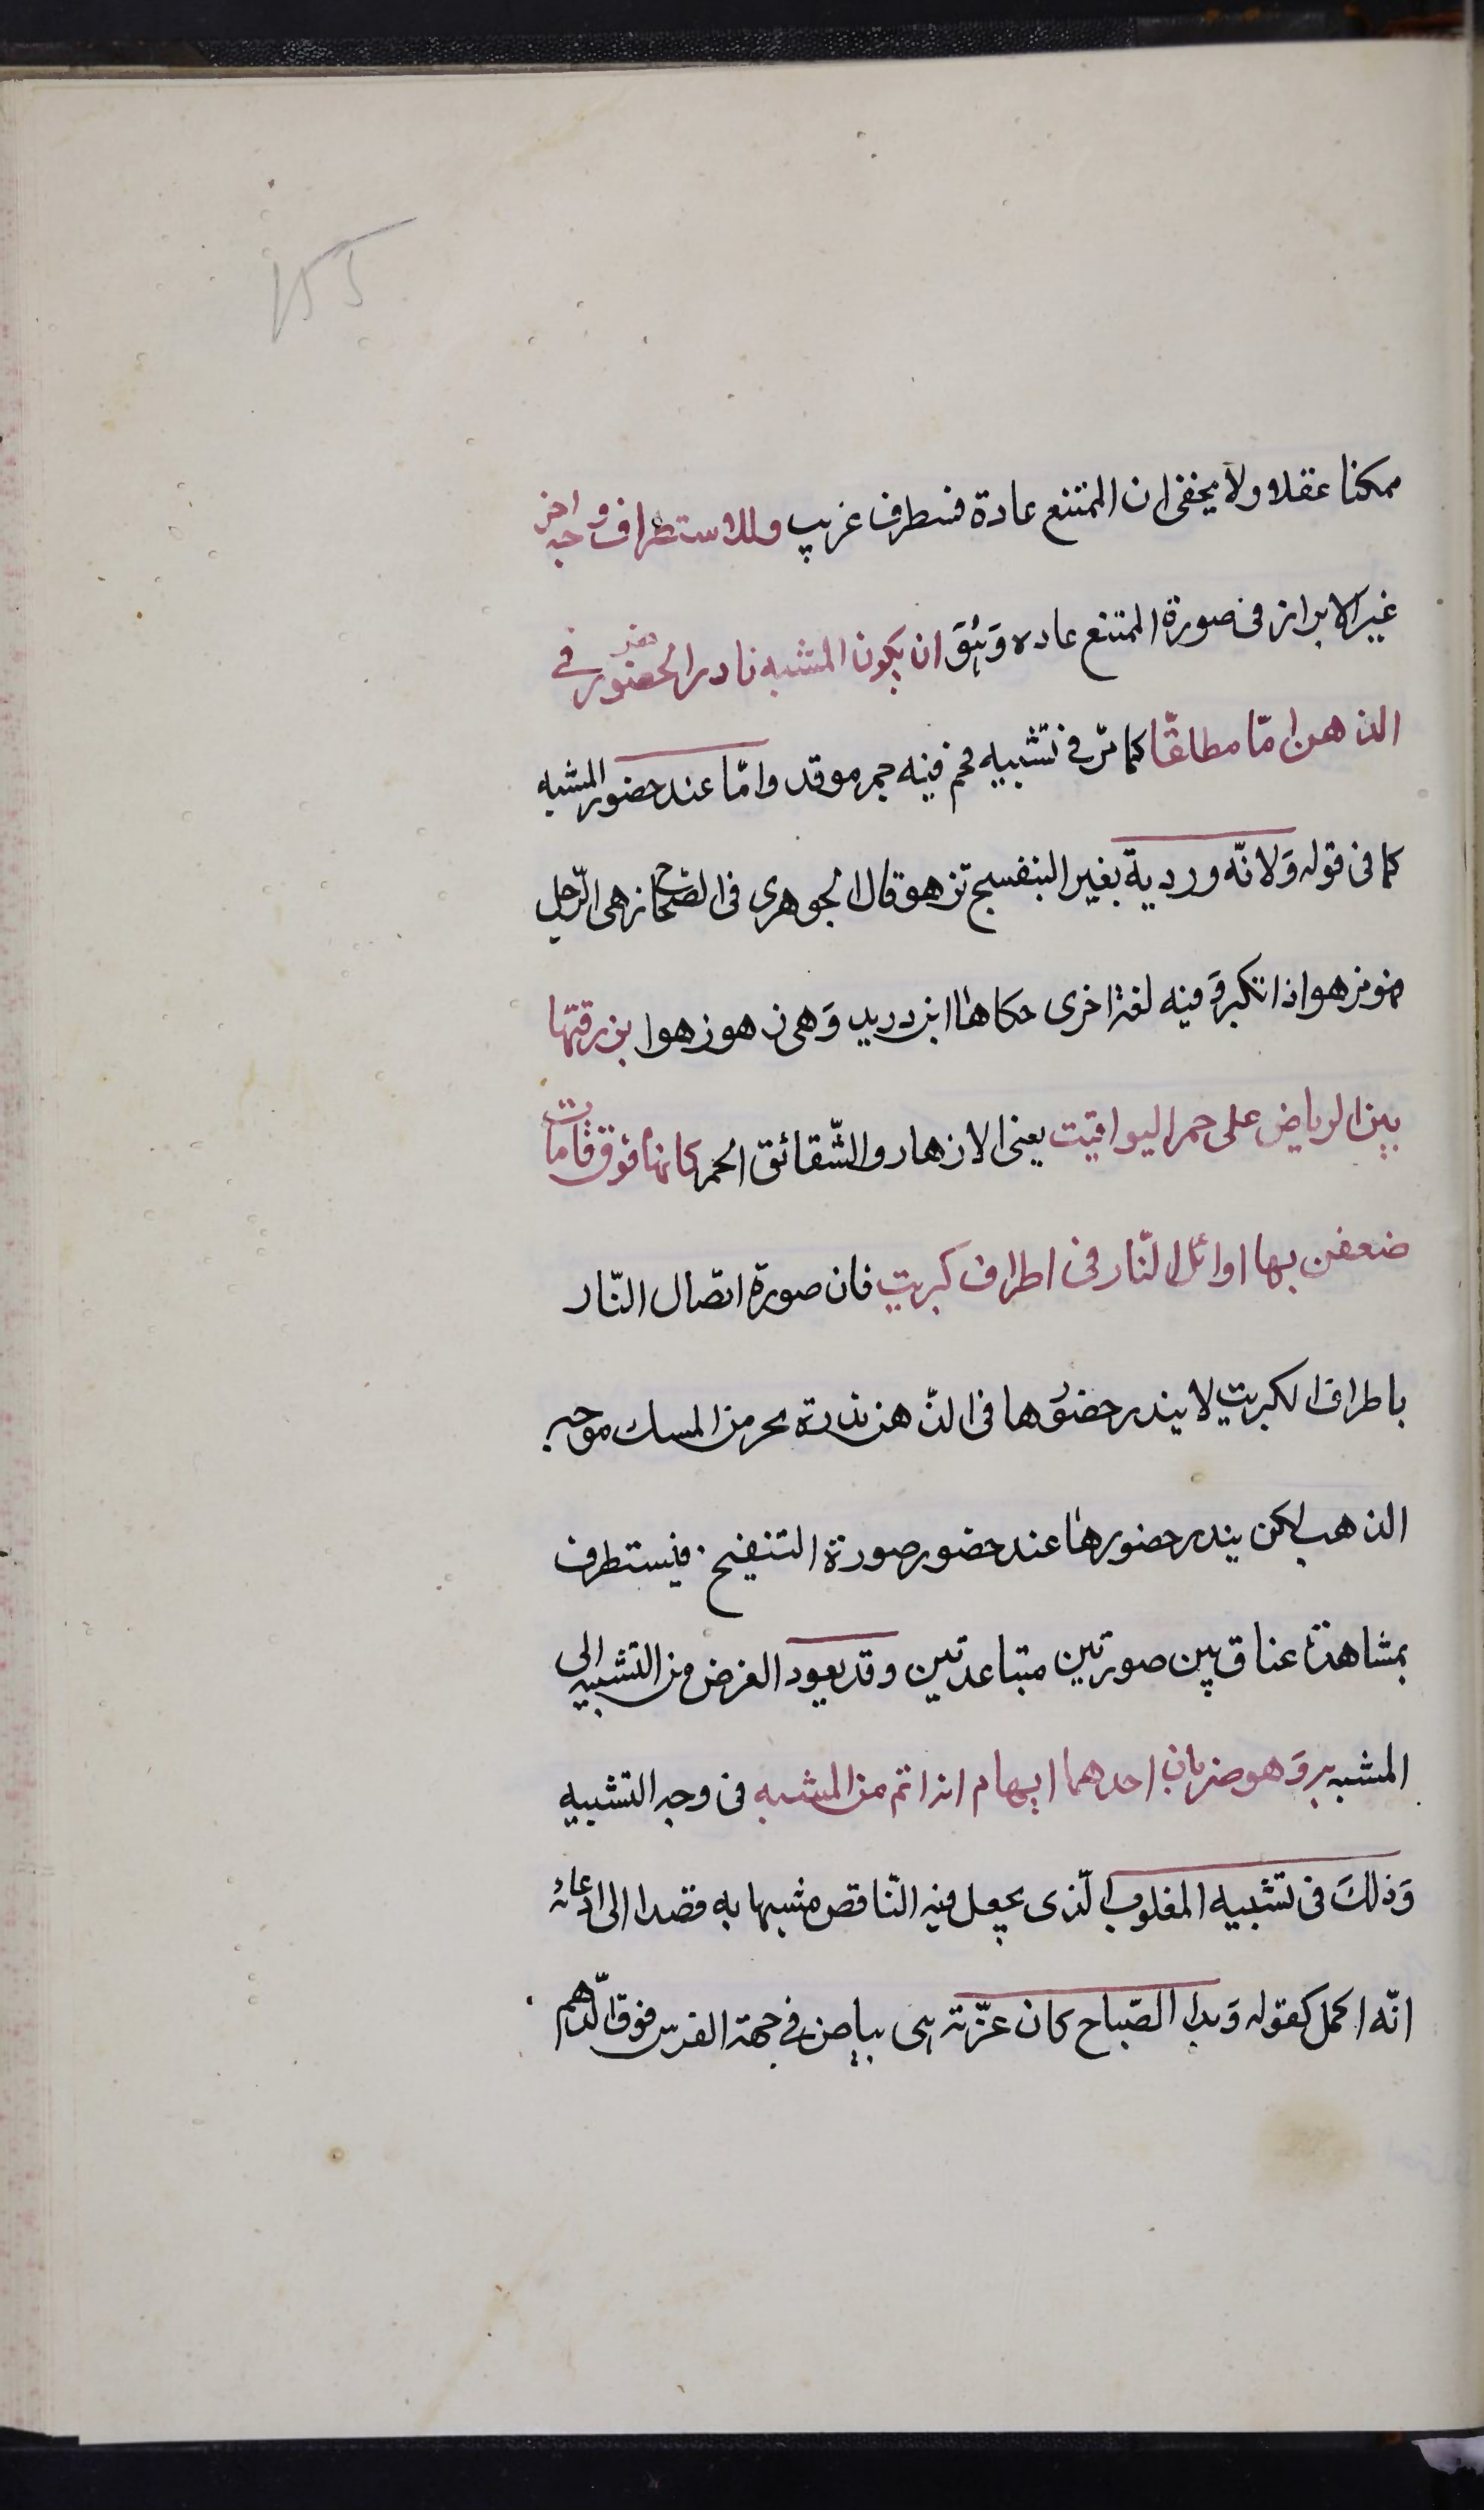 ١٥٥
ممكنا عقلا ولا يخفى ان الممتنع عادة فستطرف غريب وللاستطراف وجه اخر
غير الابراز فى صورة الممتنع عاده وَهُوَ ان يكون المشبه نادر الحضور فى
الذهن امّا مطلقًا كما مرّ فى تشبيه فحم فيه جمر موقد وامّا عند حضور المشبه
كما فى قوله وَلانّه وردية بغير البنفسج تزهو قال الجوهرى فى الصّحاح زهى الرّجل
فهو مزهو اذا تكبر وَفيه لغة اخرى حكاها ابن دريد وَهى زهو زهوا بزرقتها
بين الرياض على حمر اليواقيت يعنى الازهار والشّقائق الحمر كانها فوق قامات
ضعفن بها اوائل النّار فى اطراف كبريت فان صورة اتصال النّار
باطراف الكبريت لا يندر حضورها فى الذّهن ندرة بحر من المسك موجه
الذهب لكن يندر حضورها عند حضور صورة التنفيح فيستطرف
بمشاهدة عناق بين صورتين متباعدتين وقد يعود الغرض من التشبيه الى
المشبه به وَهو ضربان احدهما ايهام انه اتم من المشبه فى وجه التشبيه
وَذلكَ فى تشبيه المغلوب الّذى يجعل فيه النّاقص مشبها به قصدا الى ادعائه
انّه اكمل كقوله وَبدا الصّباح كان غرّته هى بياض فى جبهة الفرس فوق الدّرهم